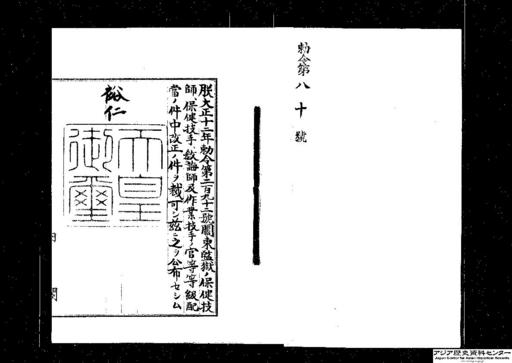 勅令第八十號
朕大正十二年勅令第二百九十三號關東監獄ノ保健技
師、保健技手、敎誨師及作業技手ノ官等等級配
當ノ件中改正ノ件ヲ裁可シ茲ニ之ヲ公布セシム
裕仁
天皇御璽
内
閣
アジア歴史資料センター
Japan Center for Asian Historical Records